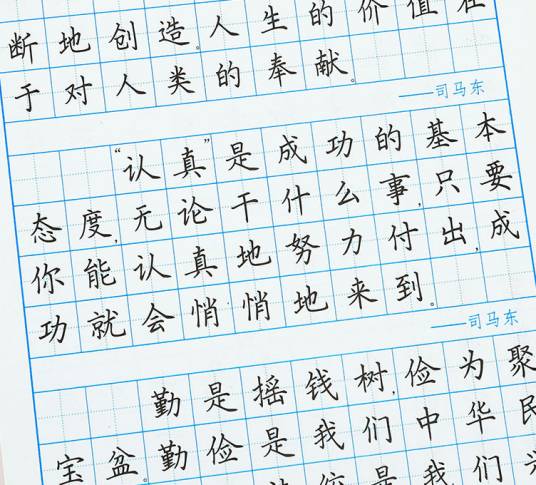 断地创造。人生的价值在
于对人类的奉献。
——司马东
“认真”是成功的基本
态度，无论干什么事，只要
你能认真地努力付出，成
功就会悄悄地来到。
——司马东
勤是摇钱树，俭为聚
宝盆。勤俭是我们中华民
是我们